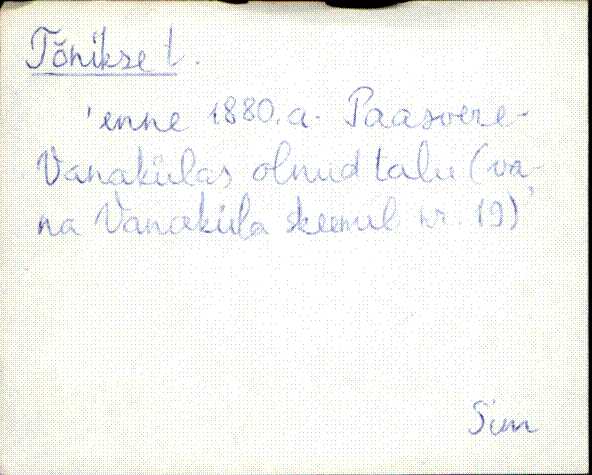 Tõnikse t.
'enne 1880.a. Paasvere-
Vanakülas olnud talu (va-
na Vanaküla skeemil nr. 19)'
Sim